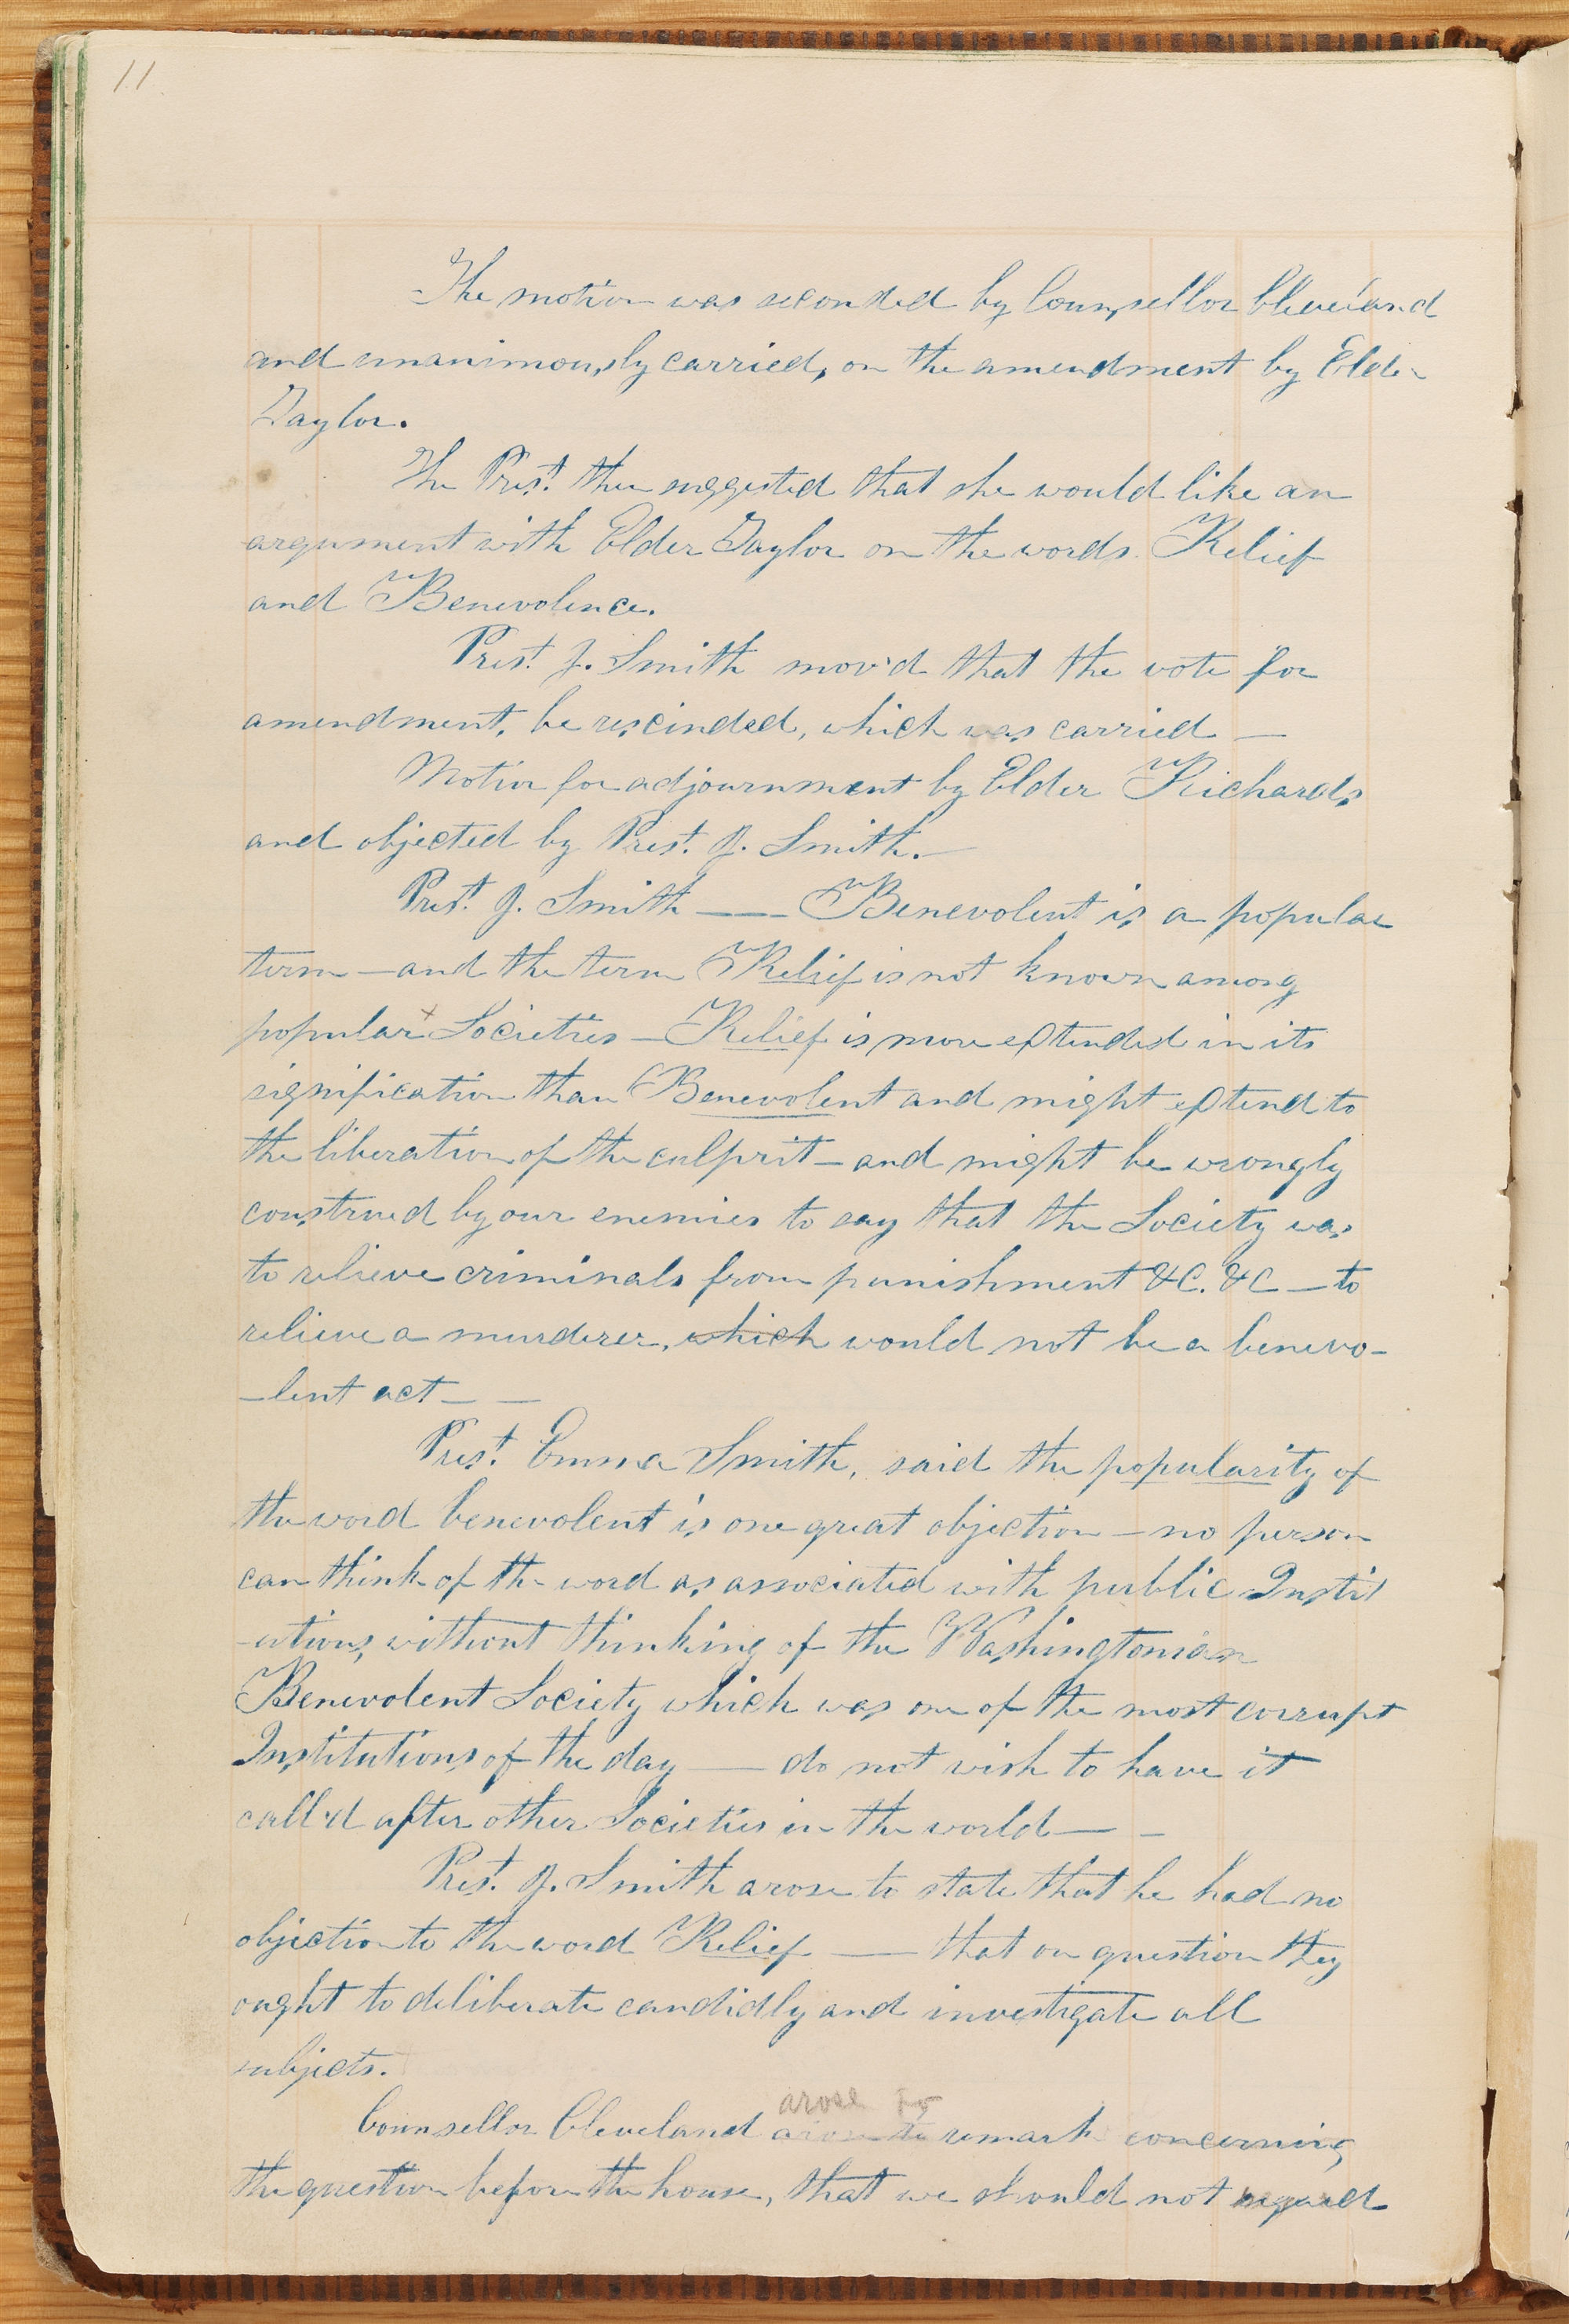 11.
The motion was seconded by Counsellor Cleveland
and unanimously carried, on the amendment by Elder
Taylor.
The Prest. then suggested that she would like an
argument with Elder Taylor on the words Relief
and Benevolence.
Prest. J. Smith mov'd that the vote for
amendment, be rescinded, which was carried —
Motion for adjournment by Elder Richards
and objected by Prest. J. Smith. —
Prest. J. Smith — Benevolent is a popular
term — and the term Relief is not known among
popular x Societies — Relief is more extended in its
signification than Benevolent and might extend to
the liberation of the culprit — and might be wrongly
construed by our enemies to say that the Society was
to relieve criminals from punishment &c. &c — to
relieve a murderer, which would not be a benevo-
-lent act — —
Prest. Emma Smith, said the popularity of
the word benevolent is one great objection — no person
can think of the word as associated with public Instit
-utions, without thinking of the Washingtonian
Benevolent Society which was one of the most corrupt
Institutions of the day — do not wish to have it
call'd after other Societies in the world — —
Prest. J. Smith arose to state that he had no
objection to the word Relief — that on question they
ought to deliberate candidly and investigate all
subjects.
arose to
Counsellor Cleveland arose to remark concerning
the question before the house, that we should not regard